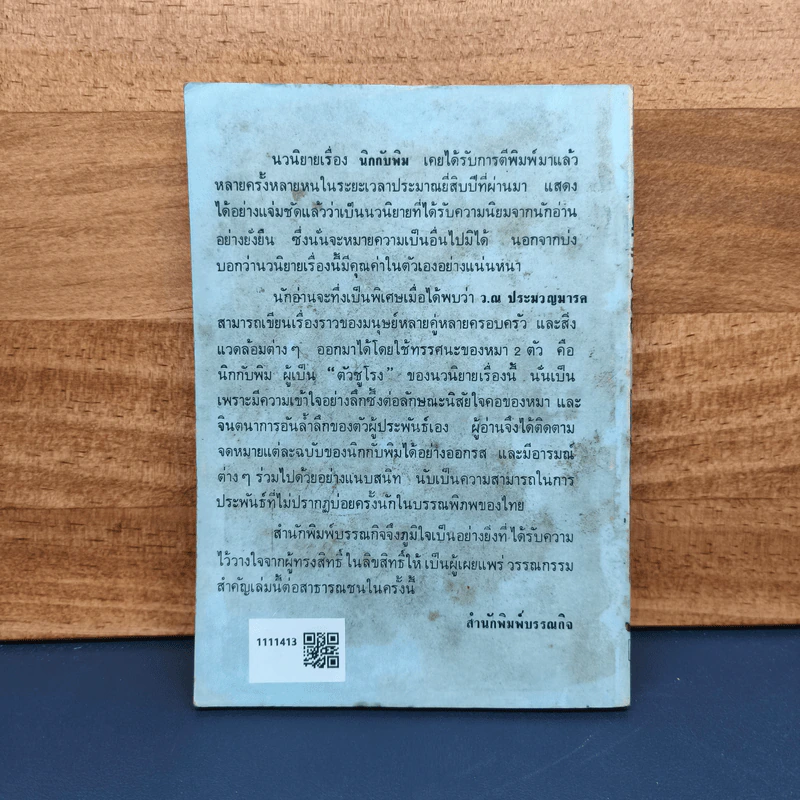 นวนิยายเรื่อง นิกกับพิม เคยได้รับการตีพิมพ์มาแล้ว
หลายครั้งหลายหนในระยะเวลาประมาณยี่สิบปีที่ผ่านมา แสดง
ได้อย่างแจ่มชัดแล้วว่าเป็นนวนิยายที่ได้รับความนิยมจากนักอ่าน
อย่างยั่งยืน ซึ่งนั่นจะหมายความเป็นอื่นไปมิได้ นอกจากบ่ง
บอกว่านวนิยายเรื่องนี้มีคุณค่าในตัวเองอย่างแน่นหนา
นักอ่านจะทึ่งเป็นพิเศษเมื่อได้พบว่า ว.ณ ประมวญมารค
สามารถเขียนเรื่องราวของมนุษย์หลายคู่หลายครอบครัว และสิ่ง
แวดล้อมต่าง ๆ ออกมาได้โดยใช้ทรรศนะของหมา 2 ตัว คือ
นิกกับพิม ผู้เป็น “ตัวชูโรง” ของนวนิยายเรื่องนี้ นั่นเป็น
เพราะมีความเข้าใจอย่างลึกซึ้งต่อลักษณะนิสัยใจคอของหมา และ
จินตนาการอันล้ำลึกของตัวผู้ประพันธ์เอง ผู้อ่านจึงได้ติดตาม
จดหมายแต่ละฉบับของนิกกับพิมได้อย่างออกรส และมีอารมณ์
ต่าง ๆ ร่วมไปด้วยอย่างแนบสนิท นับเป็นความสามารถในการ
ประพันธ์ที่ไม่ปรากฏบ่อยครั้งนักในบรรณพิภพของไทย
สำนักพิมพ์บรรณกิจจึงภูมิใจเป็นอย่างยิ่งที่ ได้รับความ
ไว้วางใจจากผู้ทรงสิทธิ์ ในลิขสิทธิ์ให้ เป็นผู้เผยแพร่ วรรณกรรม
สำคัญเล่มนี้ต่อสาธารณชนในครั้งนี้
สำนักพิมพ์บรรณกิจ
1111413